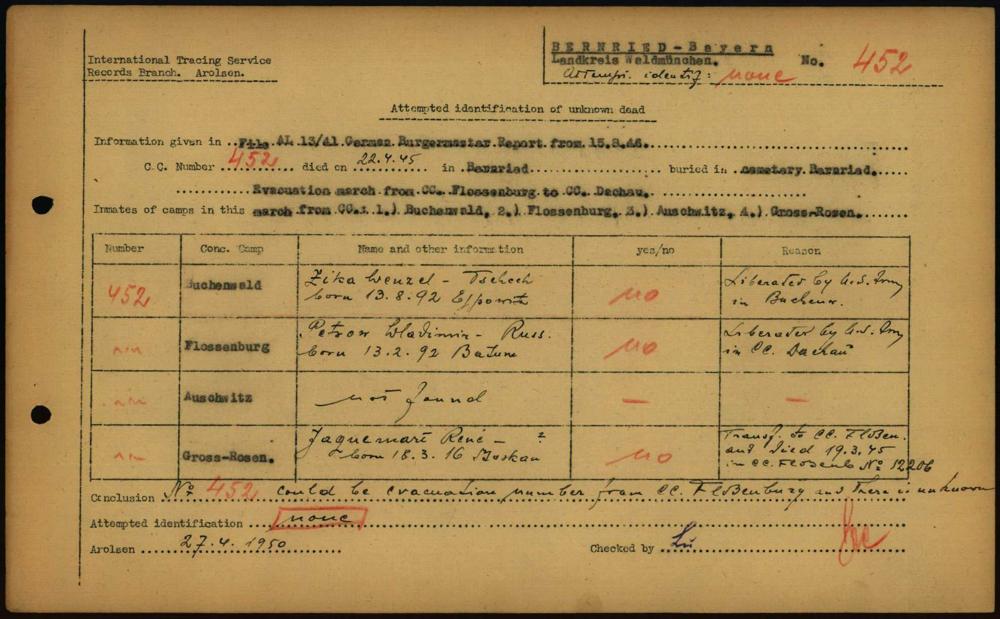 International Tracing Service
Records Branch. Arolsen.
BERNRIED-Bayern
Landkreis Waldmünchen. No. 452
Attempt. identif: none
Attempted identification of unknown dead
Information given in ..File AL 13/41 German Burgermaster Report from 15.8.46.
C.C. Number 452 died on 22.4.45 in Bernried. buried in cemetery Bernried.
Evacuation march from CC. Flossenburg to CC. Dachau.
Inmates of camps in this march from CC.: 1.) Buchenwald, 2.) Flossenburg, 3.) Auschwitz, 4.) Gross-Rosen.
Number Conc. Camp Name and other information yes/no Reason
452 Buchenwald Zika Wenzel - Tschech no Liberated by U.S. Army
born 13.8.92 in Buchenw.
-"- Flossenburg Petrow Wladimir - Russ. no Liberated by U.S. Army
born 13.2.92 Batum in CC. Dachau
-"- Auschwitz not found — —
-"- Gross-Rosen. Jaquemart René - ? no Transf. to CC. Floßen.
born 18.3.16 and died 19.3.45
in CC. Flosenb No 12206
Conclusion No 452 could be evacuation number from CC. Floßenburg and there is unknown
Attempted identification none
Arolsen 27.4.1950 Checked by